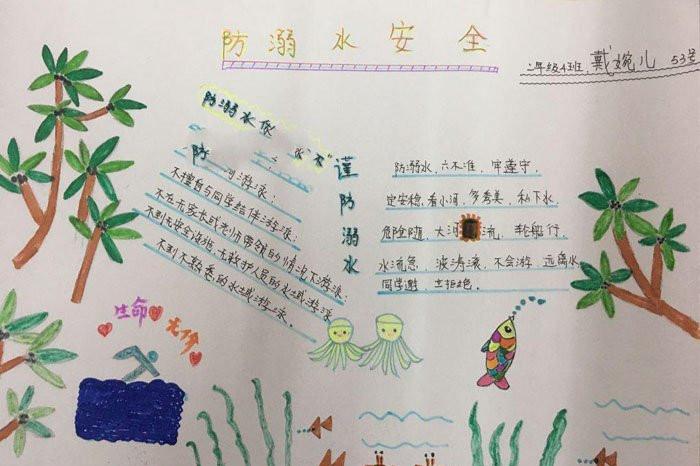 防溺水安全
二年级4班 戴婉儿 53号
防溺水
"不"
防 游泳:
不擅自与同学结伴游泳:
不在无家长或老师带领的情况下游泳:
不到无安全设施、无救护人员的水域游泳:
不到不熟悉的水域游泳.
谨防溺水
防溺水,六不准,牢遵守,
定安稳.看小河,多秀美,私下水
危险随,大河 流,轮船行,
水流急,波涛滚,不会游 远离水
同学邀 拒绝.
生命 无价